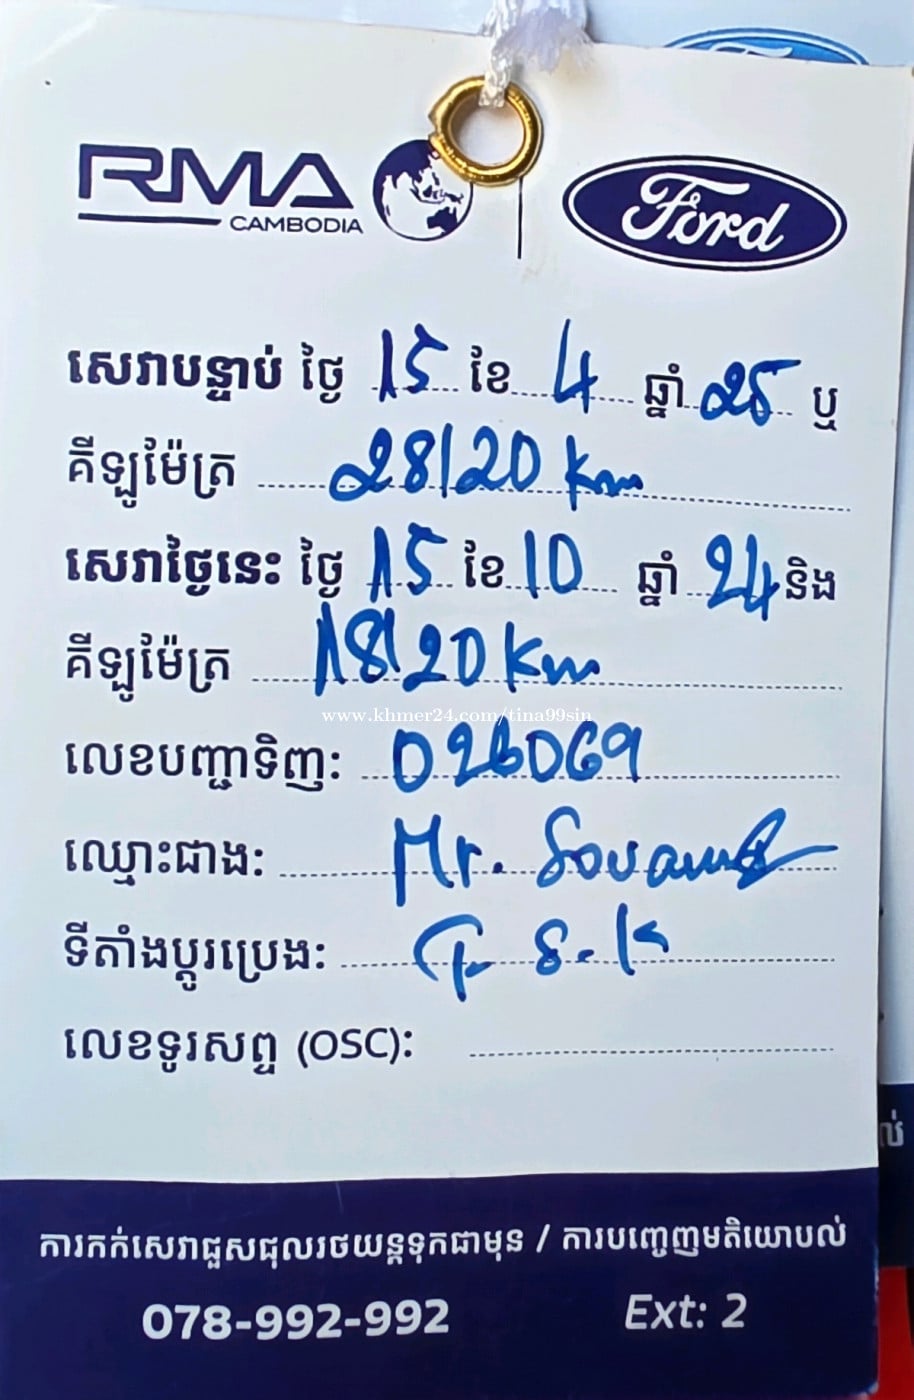 RMA Ford
CAMBODIA
សេវាបន្ទាប់ ថ្ងៃ 15 ខែ 4 ឆ្នាំ 25 ឬ
គីឡូម៉ែត្រ 28120 km
សេវាថ្ងៃនេះ ថ្ងៃ 15 ខែ 10 ឆ្នាំ 24 និង
គីឡូម៉ែត្រ 18120 km
www.khmer24.com/tina99sin
លេខបញ្ជាទិញ: 026069
ឈ្មោះជាង: Mr.
ទីតាំងប្តូរប្រេង: S.K
លេខទូរសព្ទ (OSC):
ការកក់សេវាជួសជុលរថយន្តទុកជាមុន / ការបញ្ចេញមតិយោបល់
078-992-992 Ext: 2